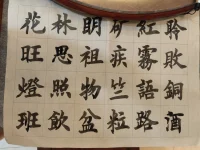 聆敗銅酒
紅霧語路
疾竺粒
明祖物盆
林思照飲
花旺燈班